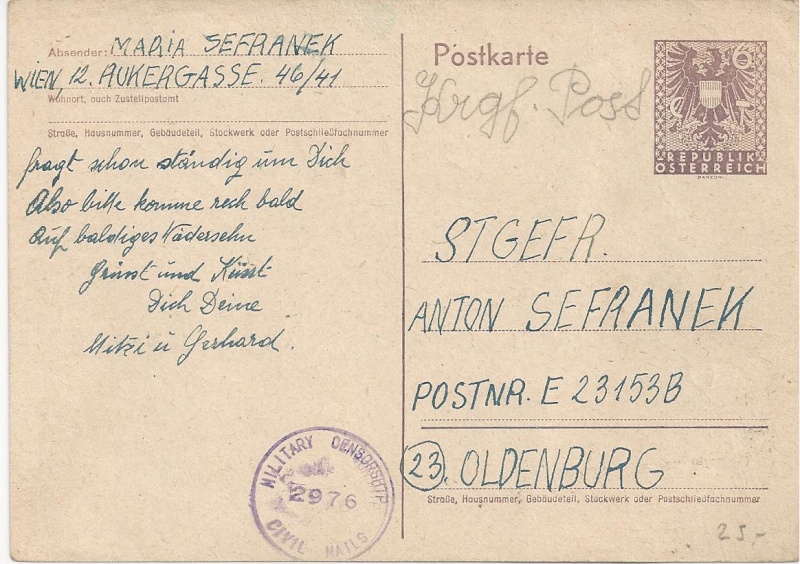 Absender: MARIA SEFRANEK
WIEN, 12. AUKERGASSE. 46/41
Wohnort, auch Zustellpostamt
Straße, Hausnummer, Gebäudeteil, Stockwerk oder Postschließfachnummer
fragt schon ständig um Dich
Also bitte komme rech bald
Auf baldiges Wädersehn
Grüsst und Küsst
Dich Deine
Mitzi u Gerhard.
MILITARY CENSORSHIP
2976
CIVIL MAILS
Postkarte
6
Krgf. Post
REPUBLIK
ÖSTERREICH
STGEFR.
ANTON SEFRANEK
POSTNR. E 23153B
23. OLDENBURG
Straße, Hausnummer, Gebäudeteil, Stockwerk oder Postschließfachnummer
25.-